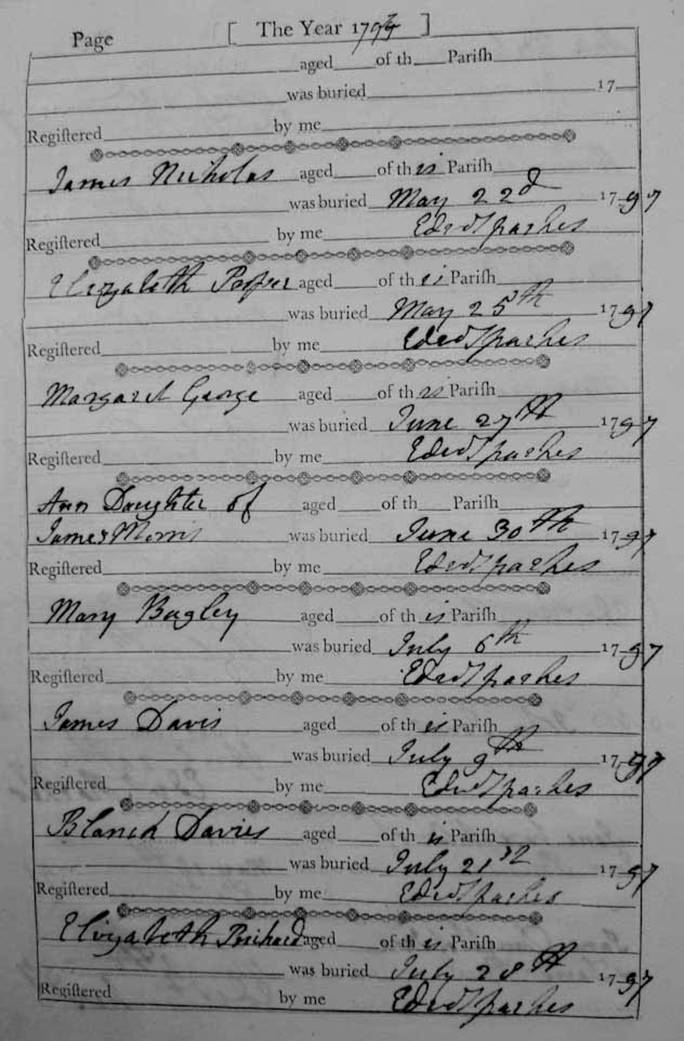 Page [ The Year 1797 ]
aged of th Parish
was buried 17
Registered by me
James Nicholas aged of this Parish
was buried May 22d 1797
Registered by me Edwd Sparkes
Elizabeth aged of this Parish
was buried May 25th 1797
Registered by me Edwd Sparkes
Margaret George aged of this Parish
was buried June 27th 1797
Registered by me Edwd Sparkes
Ann Daughter of aged of th Parish
James Morris was buried June 30th 1797
Registered by me Edwd Sparkes
Mary Bagley aged of this Parish
was buried July 6th 1797
Registered by me Edwd Sparkes
James Davis aged of this Parish
was buried July 9th 1797
Registered by me Edwd Sparkes
Blanch Davies aged of this Parish
was buried July 21st 1797
Registered by me Edwd Sparkes
Elizabeth Prichard aged of this Parish
was buried July 28th 1797
Registered by me Edwd Sparkes